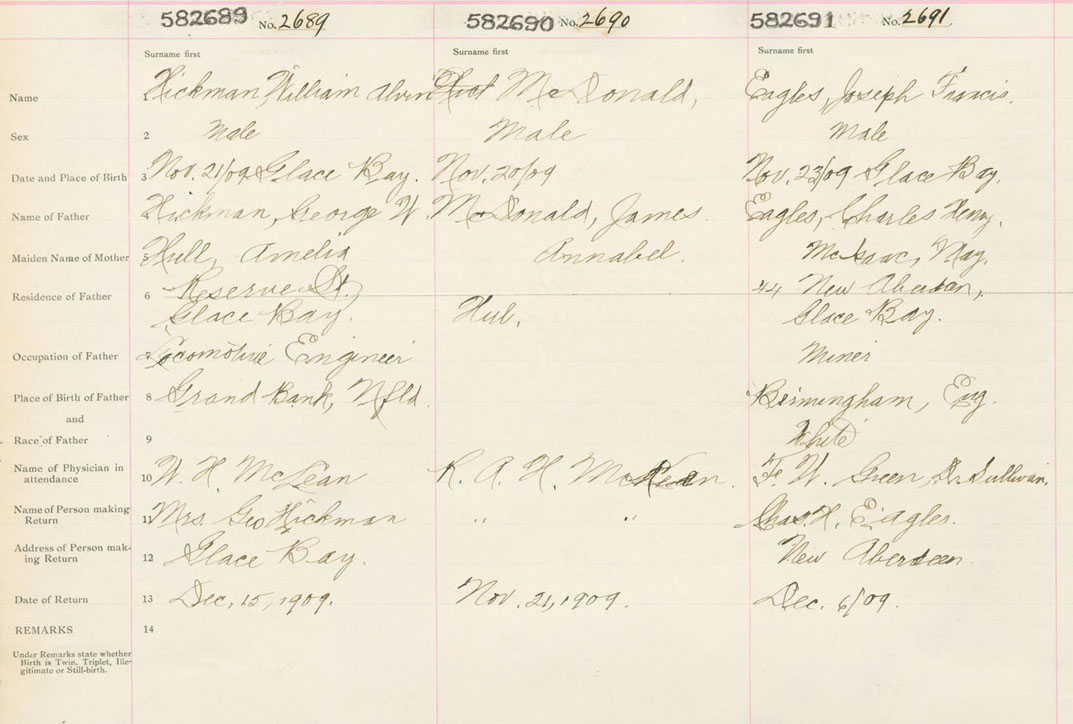 582689 No. 2689 582690 No. 2690 582691 No. 2691
Surname first Surname first Surname first
Name 1 Hickman, William Alvin McDonald, Eagles, Joseph Francis.
Sex 2 Male Male Male
Date and Place of Birth 3 Nov. 21/09 Glace Bay. Nov. 20/09 Nov. 23/09 Glace Bay.
Name of Father Hickman, George W. McDonald, James. Eagles, Charles Henry.
Maiden Name of Mother 5 Hull, Amelia Annabel. McIsaac, May.
Residence of Father 6 Reserve St. New Aberdeen,
Glace Bay. Hub. Glace Bay.
Occupation of Father 7 Locomotive Engineer Miner
Place of Birth of Father 8 Grand Bank, Nfld. Birmingham, Eng.
and
Race of Father 9 White
Name of Physician in
attendance 10 W. H. McLean R. A. H. F. W. Green, Dr Sullivan.
Name of Person making
Return 11 Mrs. Geo Hickman " " Chas. H. Eagles.
Address of Person mak-
ing Return 12 Glace Bay. New Aberdeen.
Date of Return 13 Dec. 15, 1909. Nov. 21, 1909. Dec. 6/09.
REMARKS 14
Under Remarks state whether
Birth is Twin, Triplet, Ille-
gitimate or Still-birth.